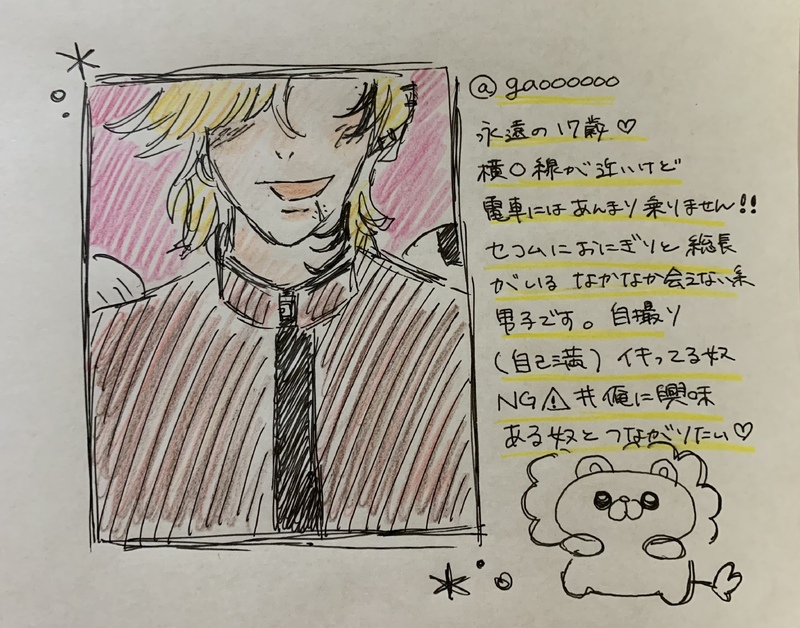 @ gaoooooo
永遠の17歳♡
横〇線が近いけど
電車にはあんまり乗りません!!
セコムにおにぎりと総長
がいる なかなか会えない系
男子です。自撮り
(自己満)イキってる奴
NG⚠#俺に興味
ある奴とつながりたい♡